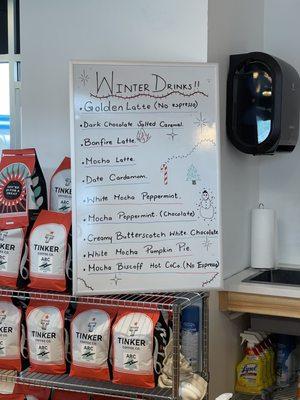 WINTER DRINKS!!
• Golden Latte (No espresso)
• Dark Chocolate Salted Caramel.
• Bonfire Latte.
• Mocha Latte.
• Date Cardamom.
• White Mocha Peppermint.
• Mocha Peppermint. (Chocolate)
• Creamy Butterscotch White Chocolate
• White Mocha Pumpkin Pie.
• Mocha Biscoff Hot CoCo. (No Espresso)
TINKER
COFFEE CO.
ABC
TINKER
COFFEE CO.
ABC
TINKER
COFFEE CO.
ABC
TINKER
COFFEE CO.
ABC
Lysol